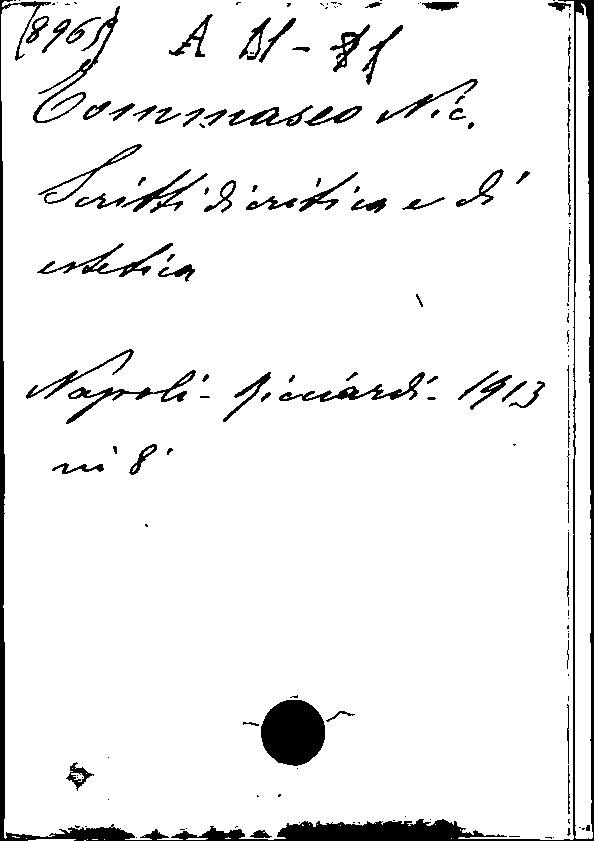 (8965) A
Tommaseo Nic.
Scritti di critica e di
estetica
Napoli - Ricciardi - 1913
in 8°